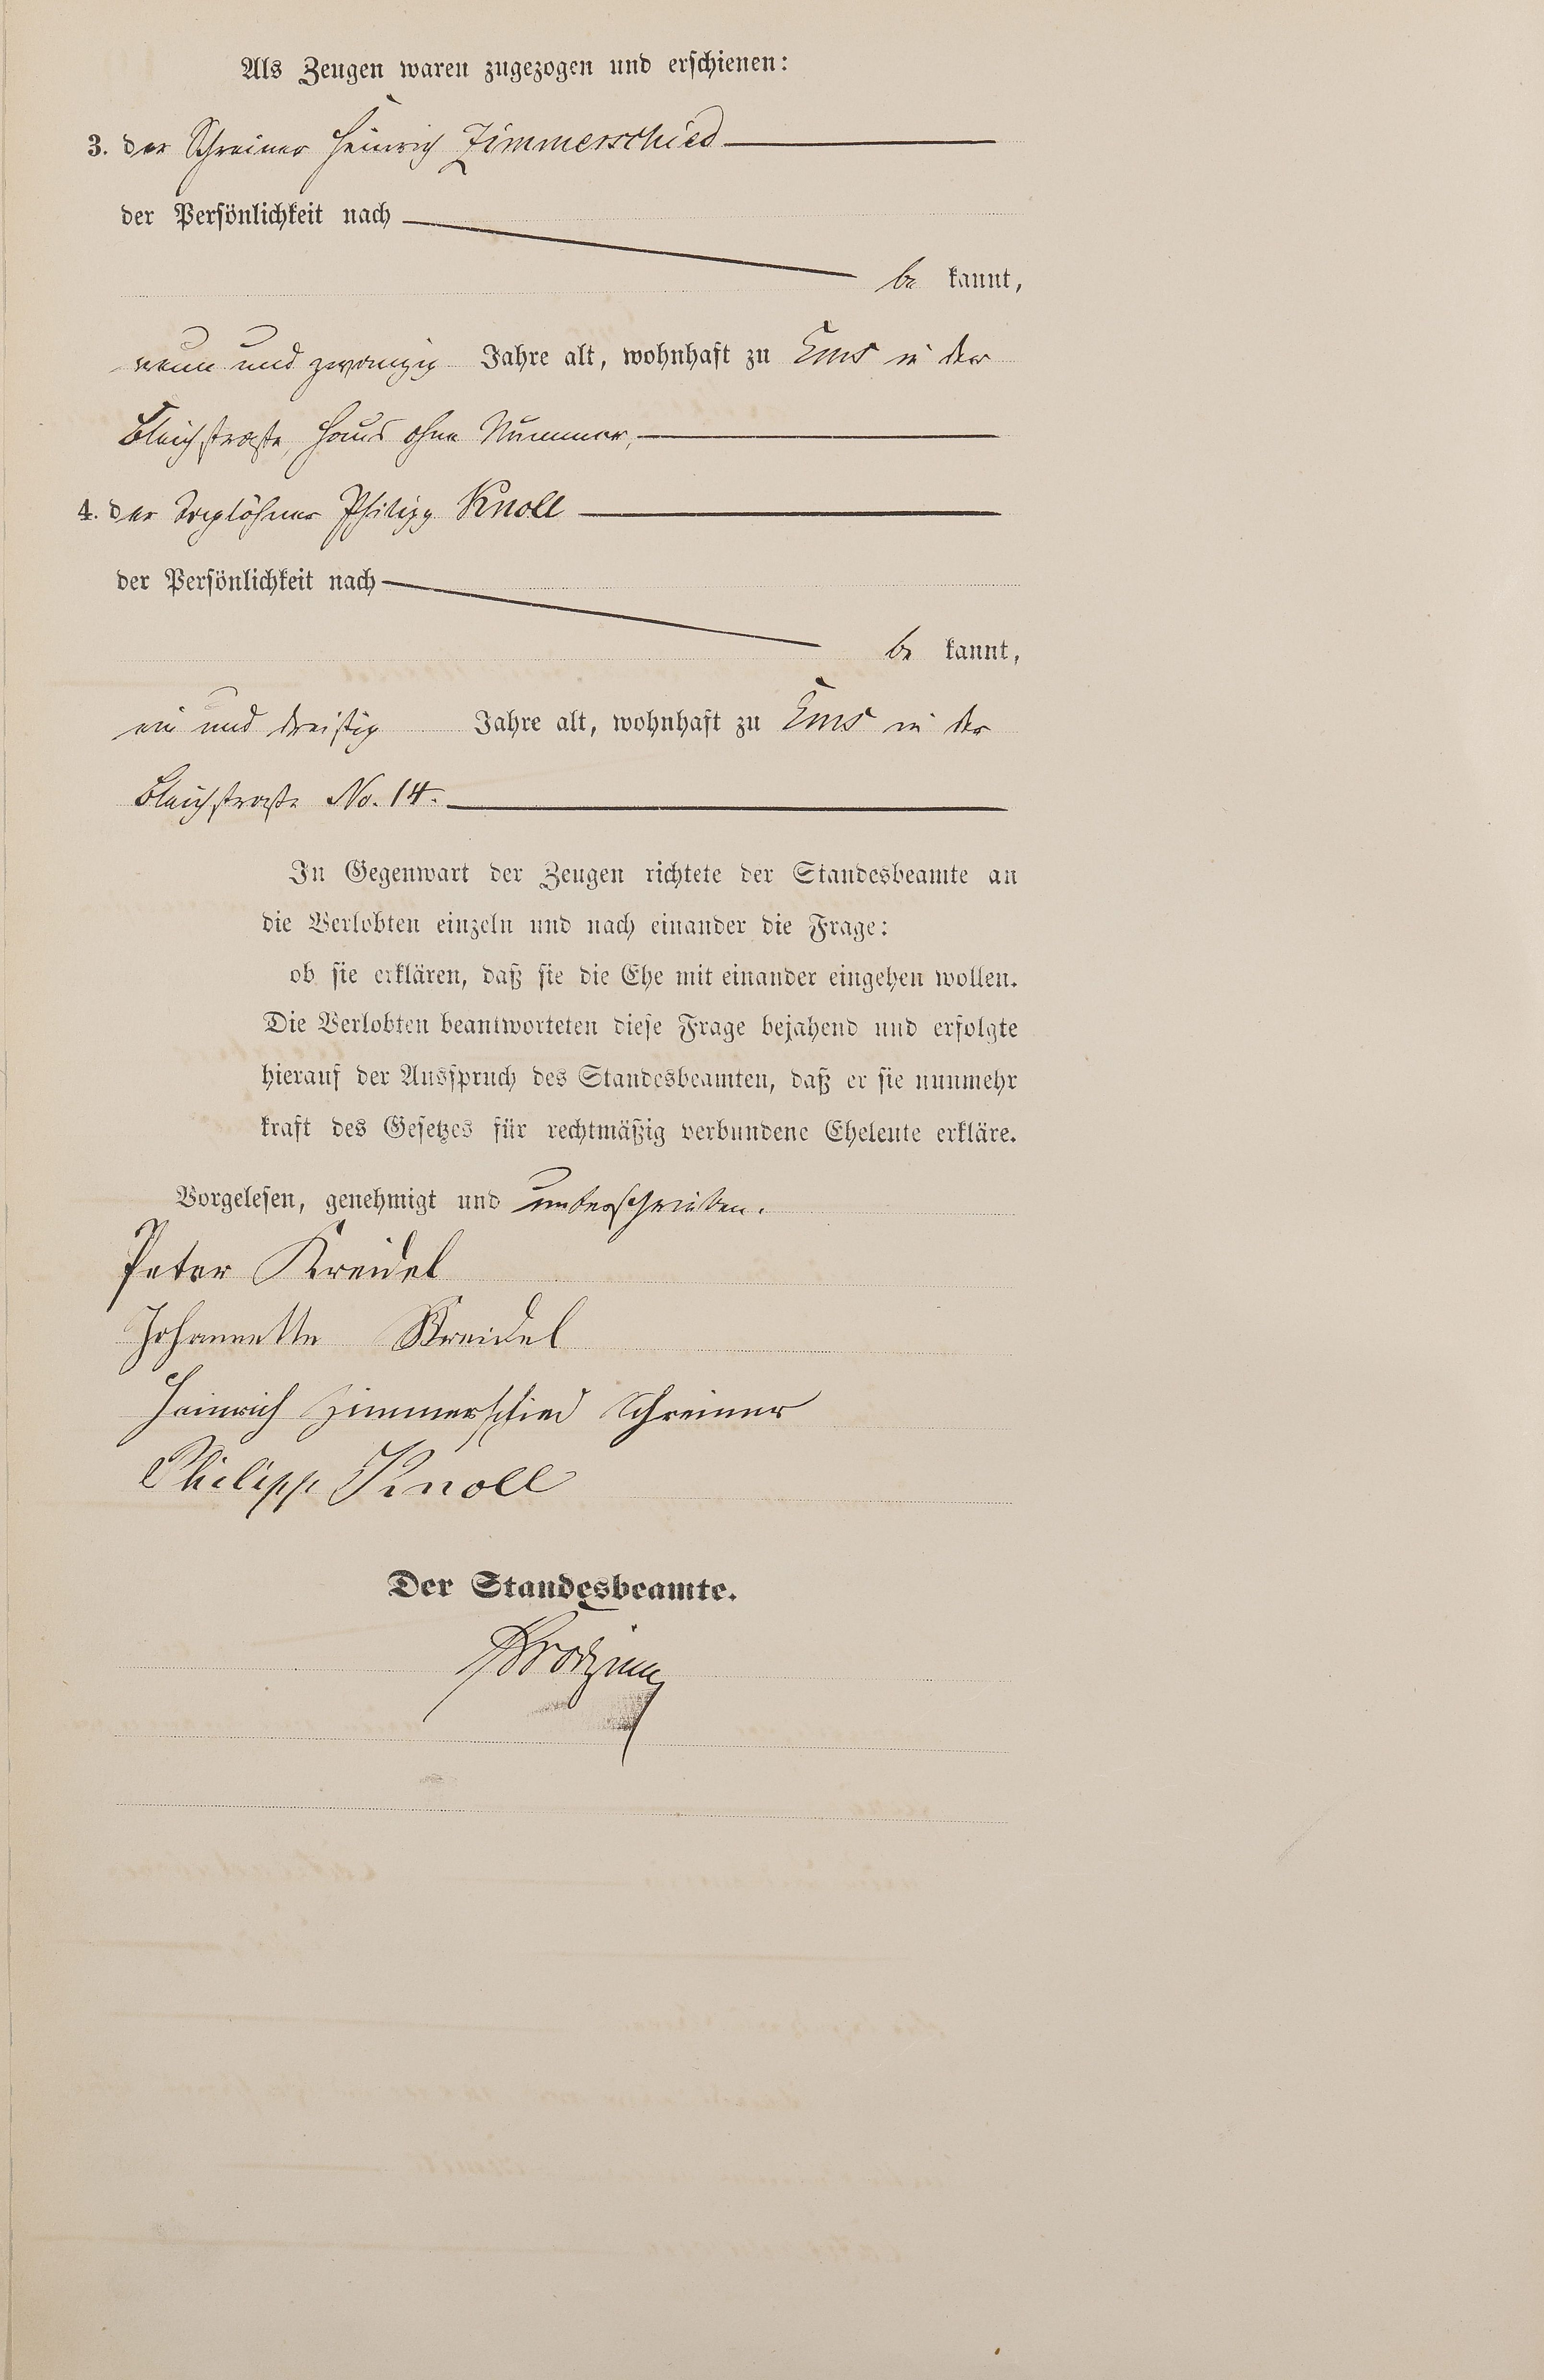 Als Zeugen waren zugezogen und erschienen:
3. der Schreiner Heinrich Zimmerschied
der Persönlichkeit nach
be kannt,
neun und zwanzig Jahre alt, wohnhaft zu Ems in der
Bleichstraße, Haus ohne Nummer,
4. der Taglöhner Philipp Knoll
der Persönlichkeit nach
be kannt,
ein und dreißig Jahre alt, wohnhaft zu Ems in der
Bleichstraße No. 14.
In Gegenwart der Zeugen richtete der Standesbeamte an
die Verlobten einzeln und nach einander die Frage:
ob sie erklären, daß sie die Ehe mit einander eingehen wollen.
Die Verlobten beantworteten diese Frage bejahend und erfolgte
hierauf der Ausspruch des Standesbeamten, daß er sie nunmehr
kraft des Gesetzes für rechtmäßig verbundene Eheleute erkläre.
Vorgelesen, genehmigt und unterschrieben.
Peter Kreidel
Johannette Kreidel
Heinrich Zimmerschied Schreiner
Philipp Knoll
Der Standesbeamte.